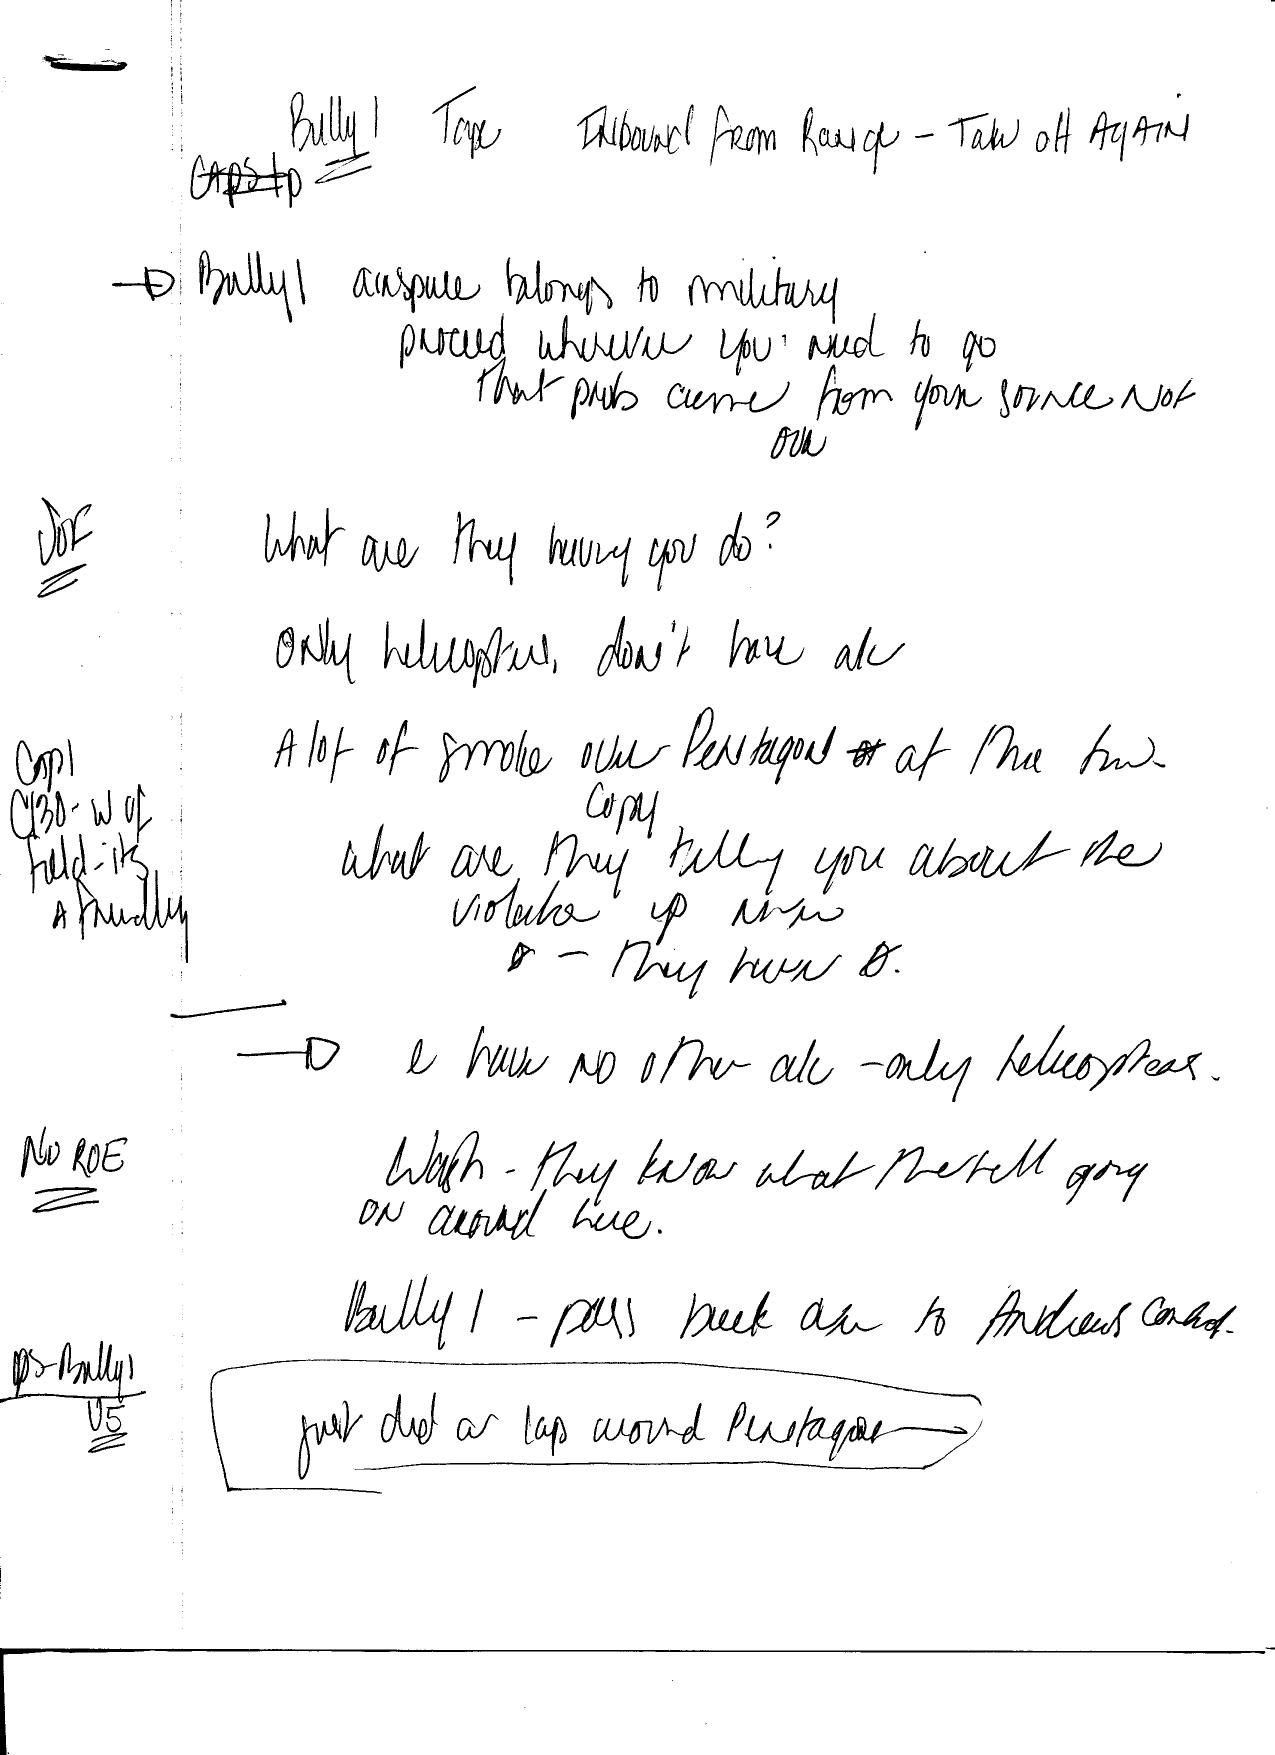 Bully 1 Tape Inbound from Range - Take off AgAIN
→ Bully 1 airspace belongs to military
proceed wherever you need to go
that prob came from your source Not
our
What are they having you do?
Only helicopters, don't have a/c
A lot of smoke over Pentagon at this time
Cap 1
C130 - W of
field - its
a friendly
Copy
what are they telling you about the
up
Ø - they have Ø.
→ have no other a/c - only helicopters.
No ROE
Wash - they know what the hell going
on around here.
Bully 1 - pass back to Andrews Control.
Bully 1
05
just did a lap around Pentagon